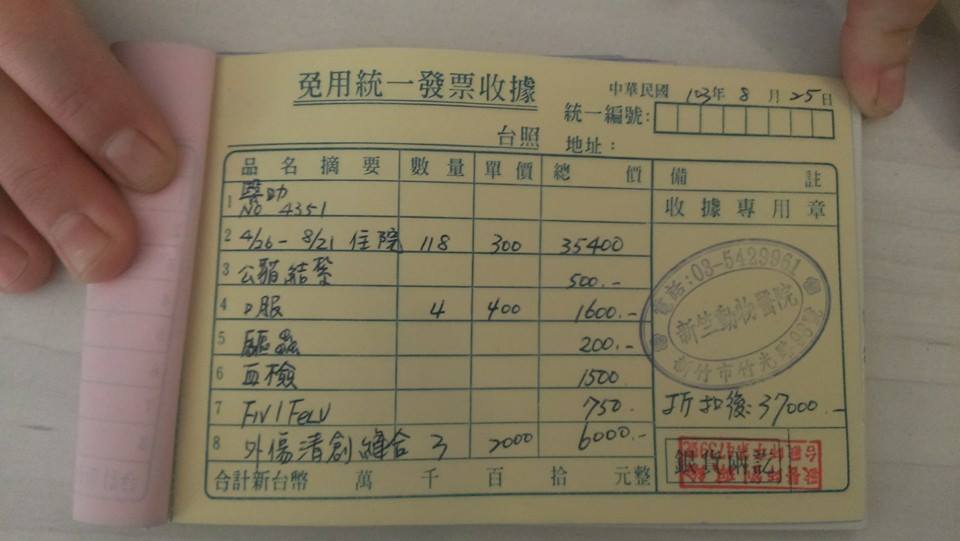 免用統一發票收據
中華民國 103年 8 月 25日
統一編號:
台照 地址:
品名摘要 數量 單價 總價 備註
1 醫助 NO 4351 收據專用章
2 4/26-8/21 住院 118 300 35400
3 公貓結紮 500.-
4 口服 4 400 1600.-
5 驅蟲 200.-
6 血檢 1500
7 FIV/FeLV 750.-
8 外傷清創縫合 3 2000 6000.-
合計新台幣 萬 千 百 拾 元整
電話:03-5429961
新竺動物醫院
新竹市竹光路
折扣後:37000.-
銀貨兩訖